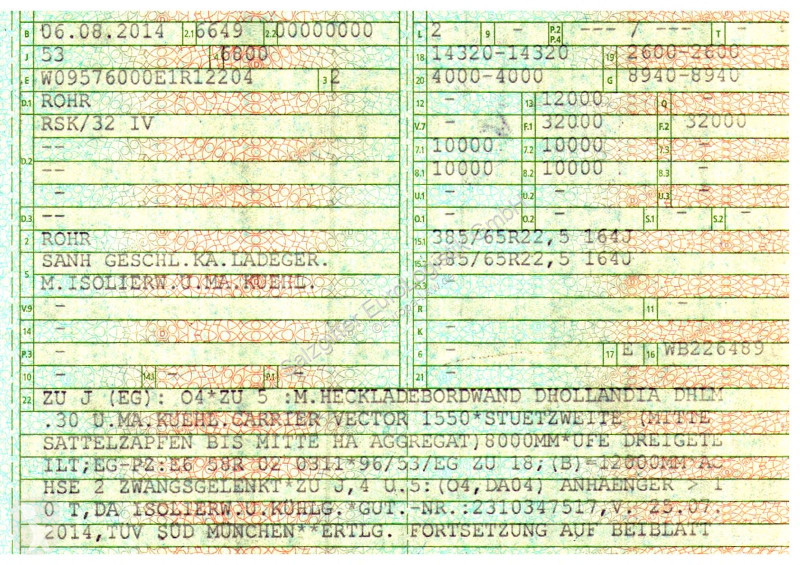 B 06.08.2014 2.1 6649 2.2 00000000 L 2 9 - P.2 P.4 --- / --- T -
J 53 4 6800 18 14320-14320 19 2600-2600
E W09576000E1R12204 3 2 20 4000-4000 G 8940-8940
D.1 ROHR 12 - 13 12000 Q -
RSK/32 IV V.7 - F.1 32000 F.2 32000
D.2 -- 7.1 10000 7.2 10000 7.3 -
-- 8.1 10000 8.2 10000 8.3 -
- U.1 - U.2 - U.3 -
D.3 -- O.1 - O.2 - S.1 - S.2 -
2 ROHR 15.1 385/65R22,5 164J
5 SANH GESCHL.KA.LADEGER. 15.2 385/65R22,5 164J
M.ISOLIERW.U.MA.KUEHL. 15.3 -
V.9 - R - 11 -
14 - K -
P.3 - 6 - 17 E 16 WB226489
10 - 14.1 - P.1 - 21 -
22 ZU J (EG): O4*ZU 5 :M.HECKLADEBORDWAND DHOLLANDIA DHLM
.30 U.MA.KUEHL.CARRIER VECTOR 1550*STUETZWEITE (MITTE
SATTELZAPFEN BIS MITTE HA AGGREGAT)8000MM*UFE DREIGETE
ILT;EG-PZ:E6 58R 02 0311*96/53/EG ZU 18;(B)=12000MM AC
HSE 2 ZWANGSGELENKT*ZU J,4 U.5:(O4,DA04) ANHAENGER > 1
0 T,DA ISOLIERW.U.KÜHLG.*GUT.-NR.:2310347517,V. 25.07.
2014,TÜV SÜD MÜNCHEN**ERTLG. FORTSETZUNG AUF BEIBLATT